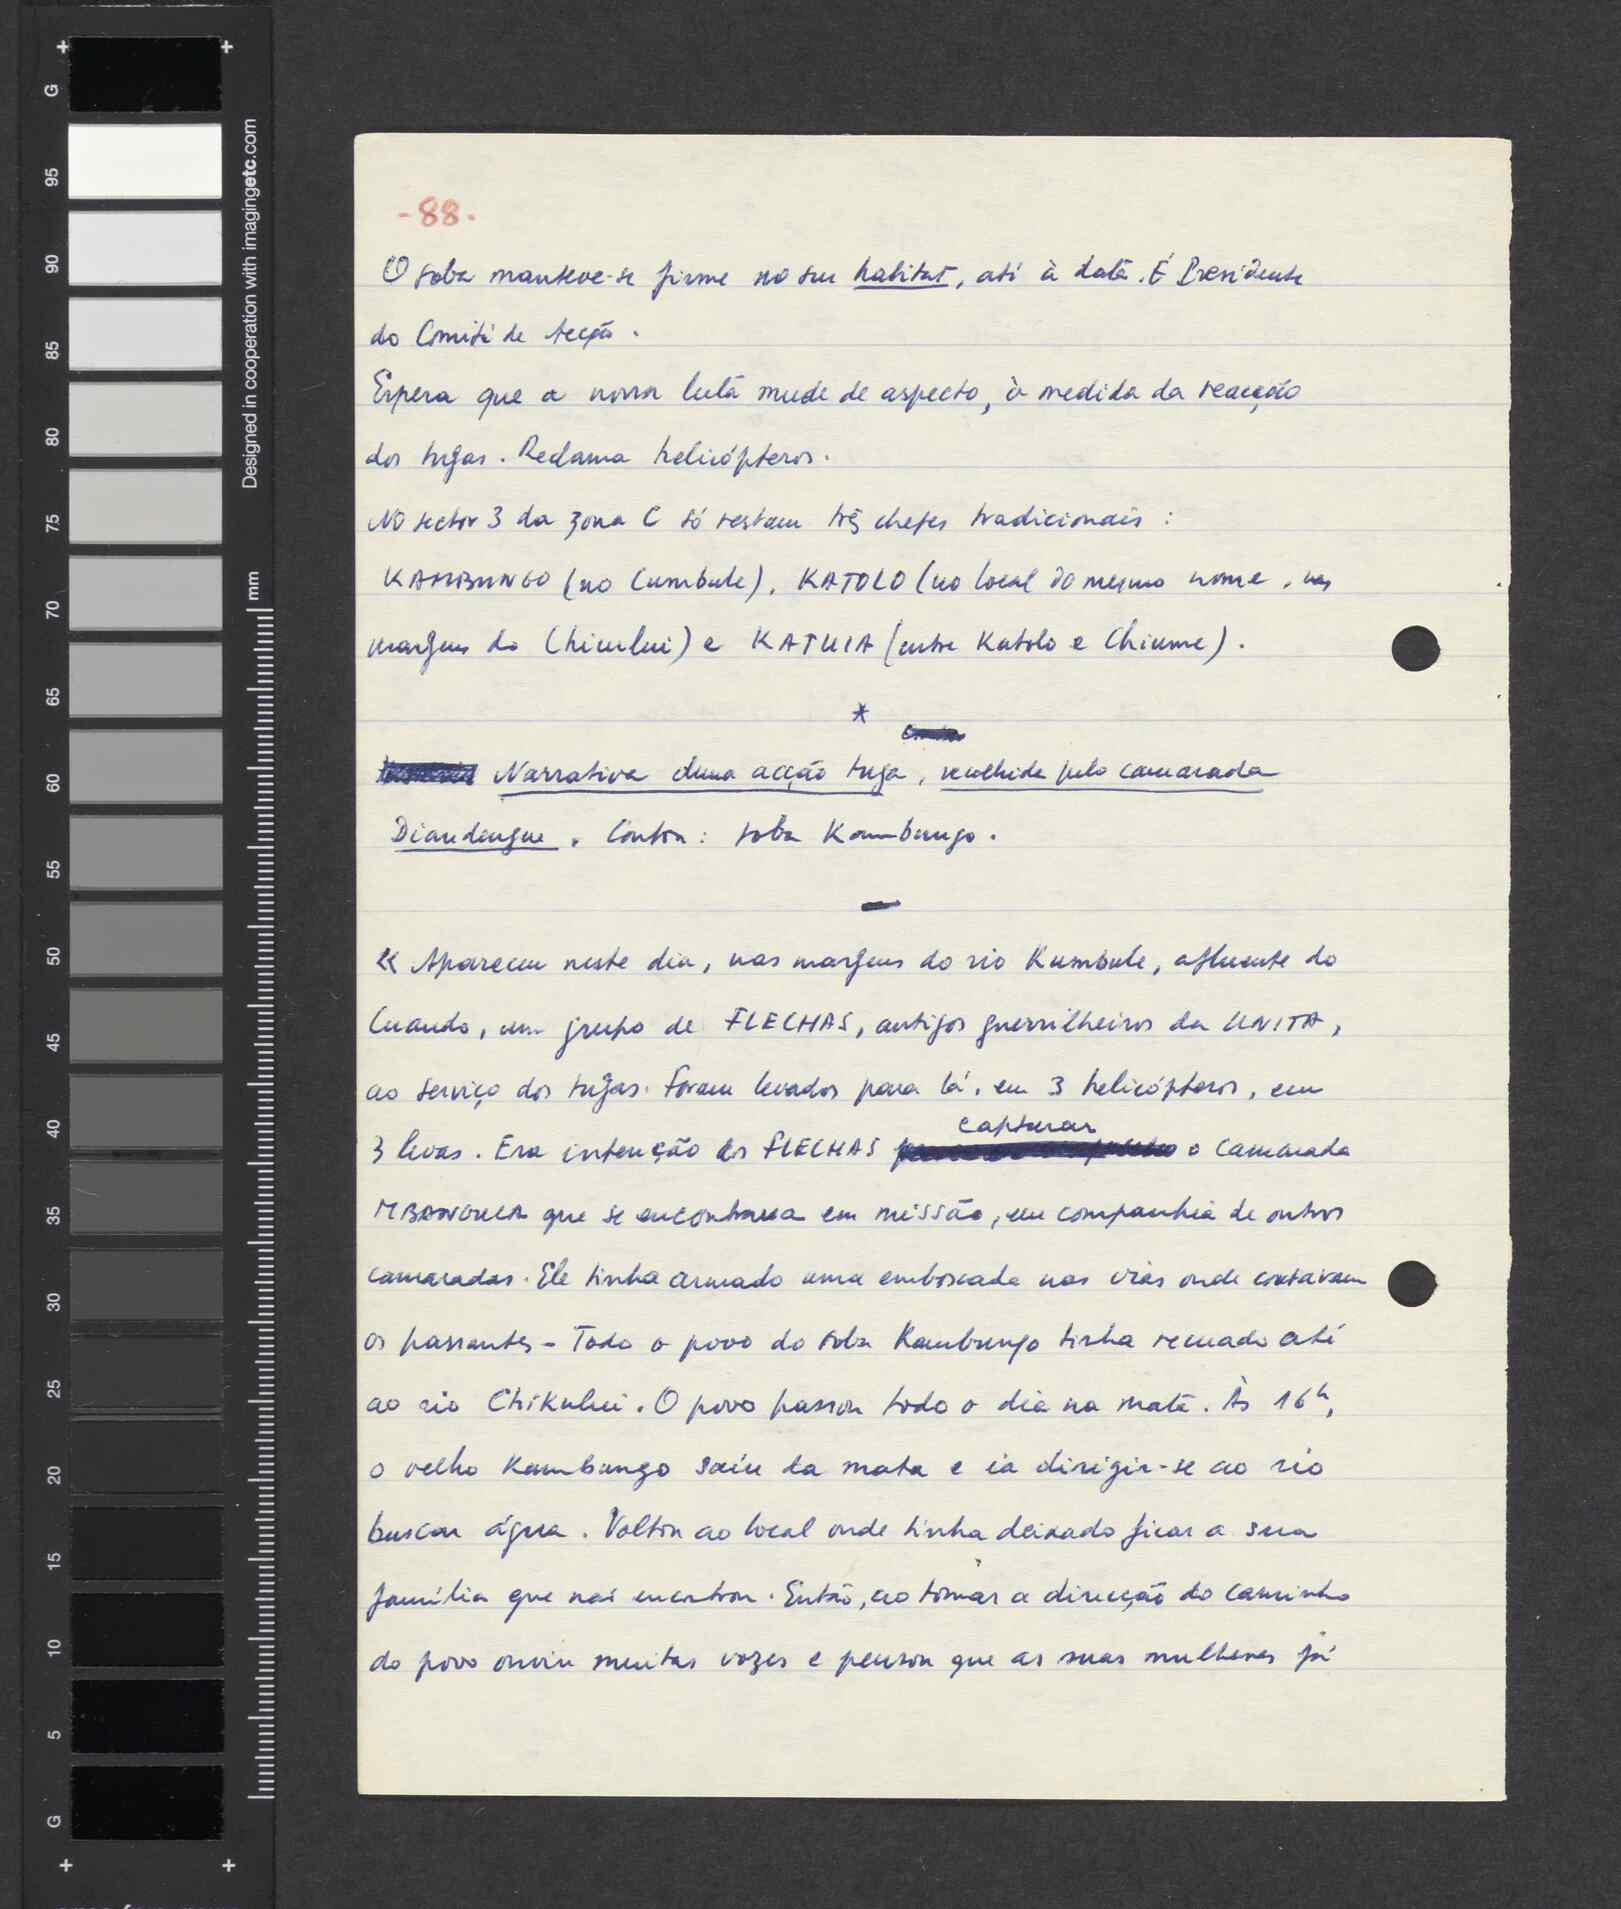 -88-
O soba manteve-se firme no seu habitat, até à data. É Presidente
do Comité de Acção.
Espera que a nossa luta mude de aspecto, à medida da reacção
dos tugas. Reclama helicópteros.
No sector 3 da zona C só restam três chefes tradicionais :
KAMBUNGO (no Cumbule), KATOLO (no local do mesmo nome, nas
margens do Chicului) e KATUIA (entre Katolo e Chiume).
*
Narrativa duma acção tuga, recolhida pelo camarada
Diandengue. Conta: soba Kambungo.
—
« Apareceu neste dia, nas margens do rio Kumbule, afluente do
Cuando, um grupo de FLECHAS, antigos guerrilheiros da UNITA,
ao serviço dos tugas. Foram levados para lá, em 3 helicópteros, em
capturar
3 levas. Era intenção dos FLECHAS o camarada
MBANGULA que se encontrava em missão, em companhia de outros
camaradas. Ele tinha armado uma emboscada nas vias onde contavam
os passantes - Todo o povo do soba Kambungo tinha recuado até
ao rio Chikului. O povo passou todo o dia na mata. Às 16h,
o velho Kambungo saiu da mata e ia dirigir-se ao rio
buscar água. Voltou ao local onde tinha deixado ficar a sua
família que não encontrou. Então, ao tomar a direcção do caminho
do povo ouviu muitas vozes e pensou que as suas mulheres já
Designed in cooperation with imagingetc.com
mm
G
95
90
85
80
75
70
65
60
55
50
45
40
35
30
25
20
15
10
5
G